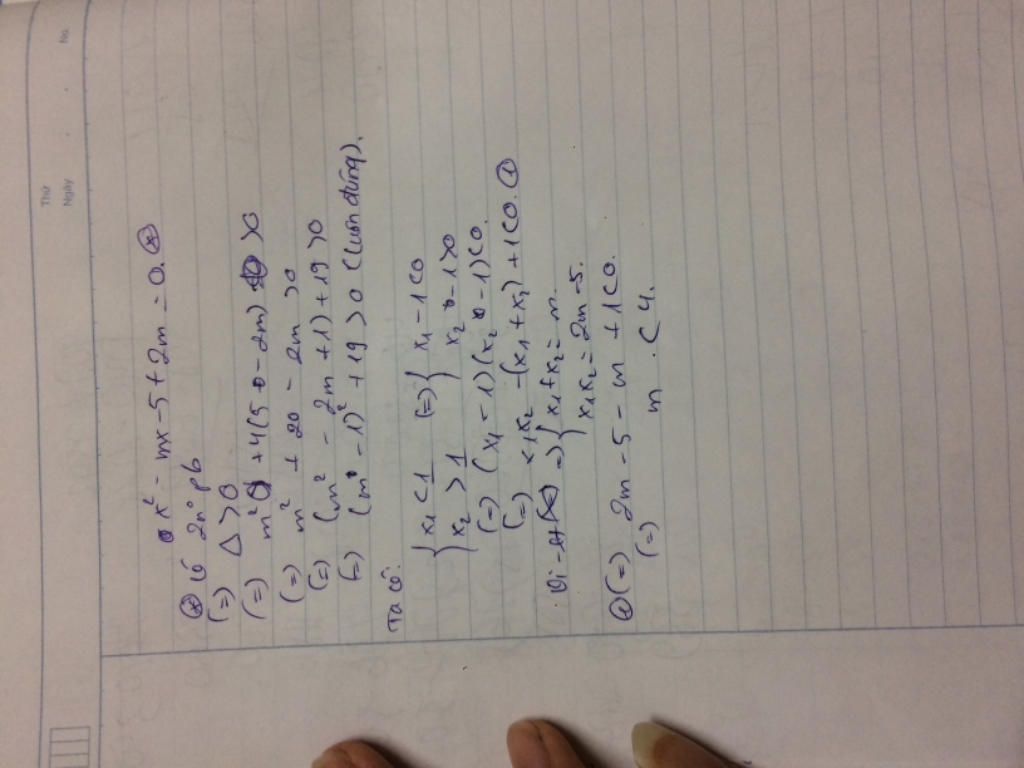 Thứ
Ngày
No.
x² - mx - 5 + 2m = 0. (*)
(*) có 2n° pb
(=) Δ > 0
(=) m² + 4(5 - 2m) > 0
(=) m² + 20 - 2m > 0
(=) (m² - 2m + 1) + 19 > 0
(=) (m - 1)² + 19 > 0 (luôn đúng).
Ta có:
{ x₁ < 1 (=) { x₁ - 1 < 0
{ x₂ > 1 { x₂ - 1 > 0
(=) (x₁ - 1)(x₂ - 1) < 0.
(=) x₁x₂ - (x₁ + x₂) + 1 < 0. (1)
Vi-ét => { x₁ + x₂ = m.
{ x₁x₂ = 2m - 5.
(1) (=) 2m - 5 - m + 1 < 0.
(=) m < 4.